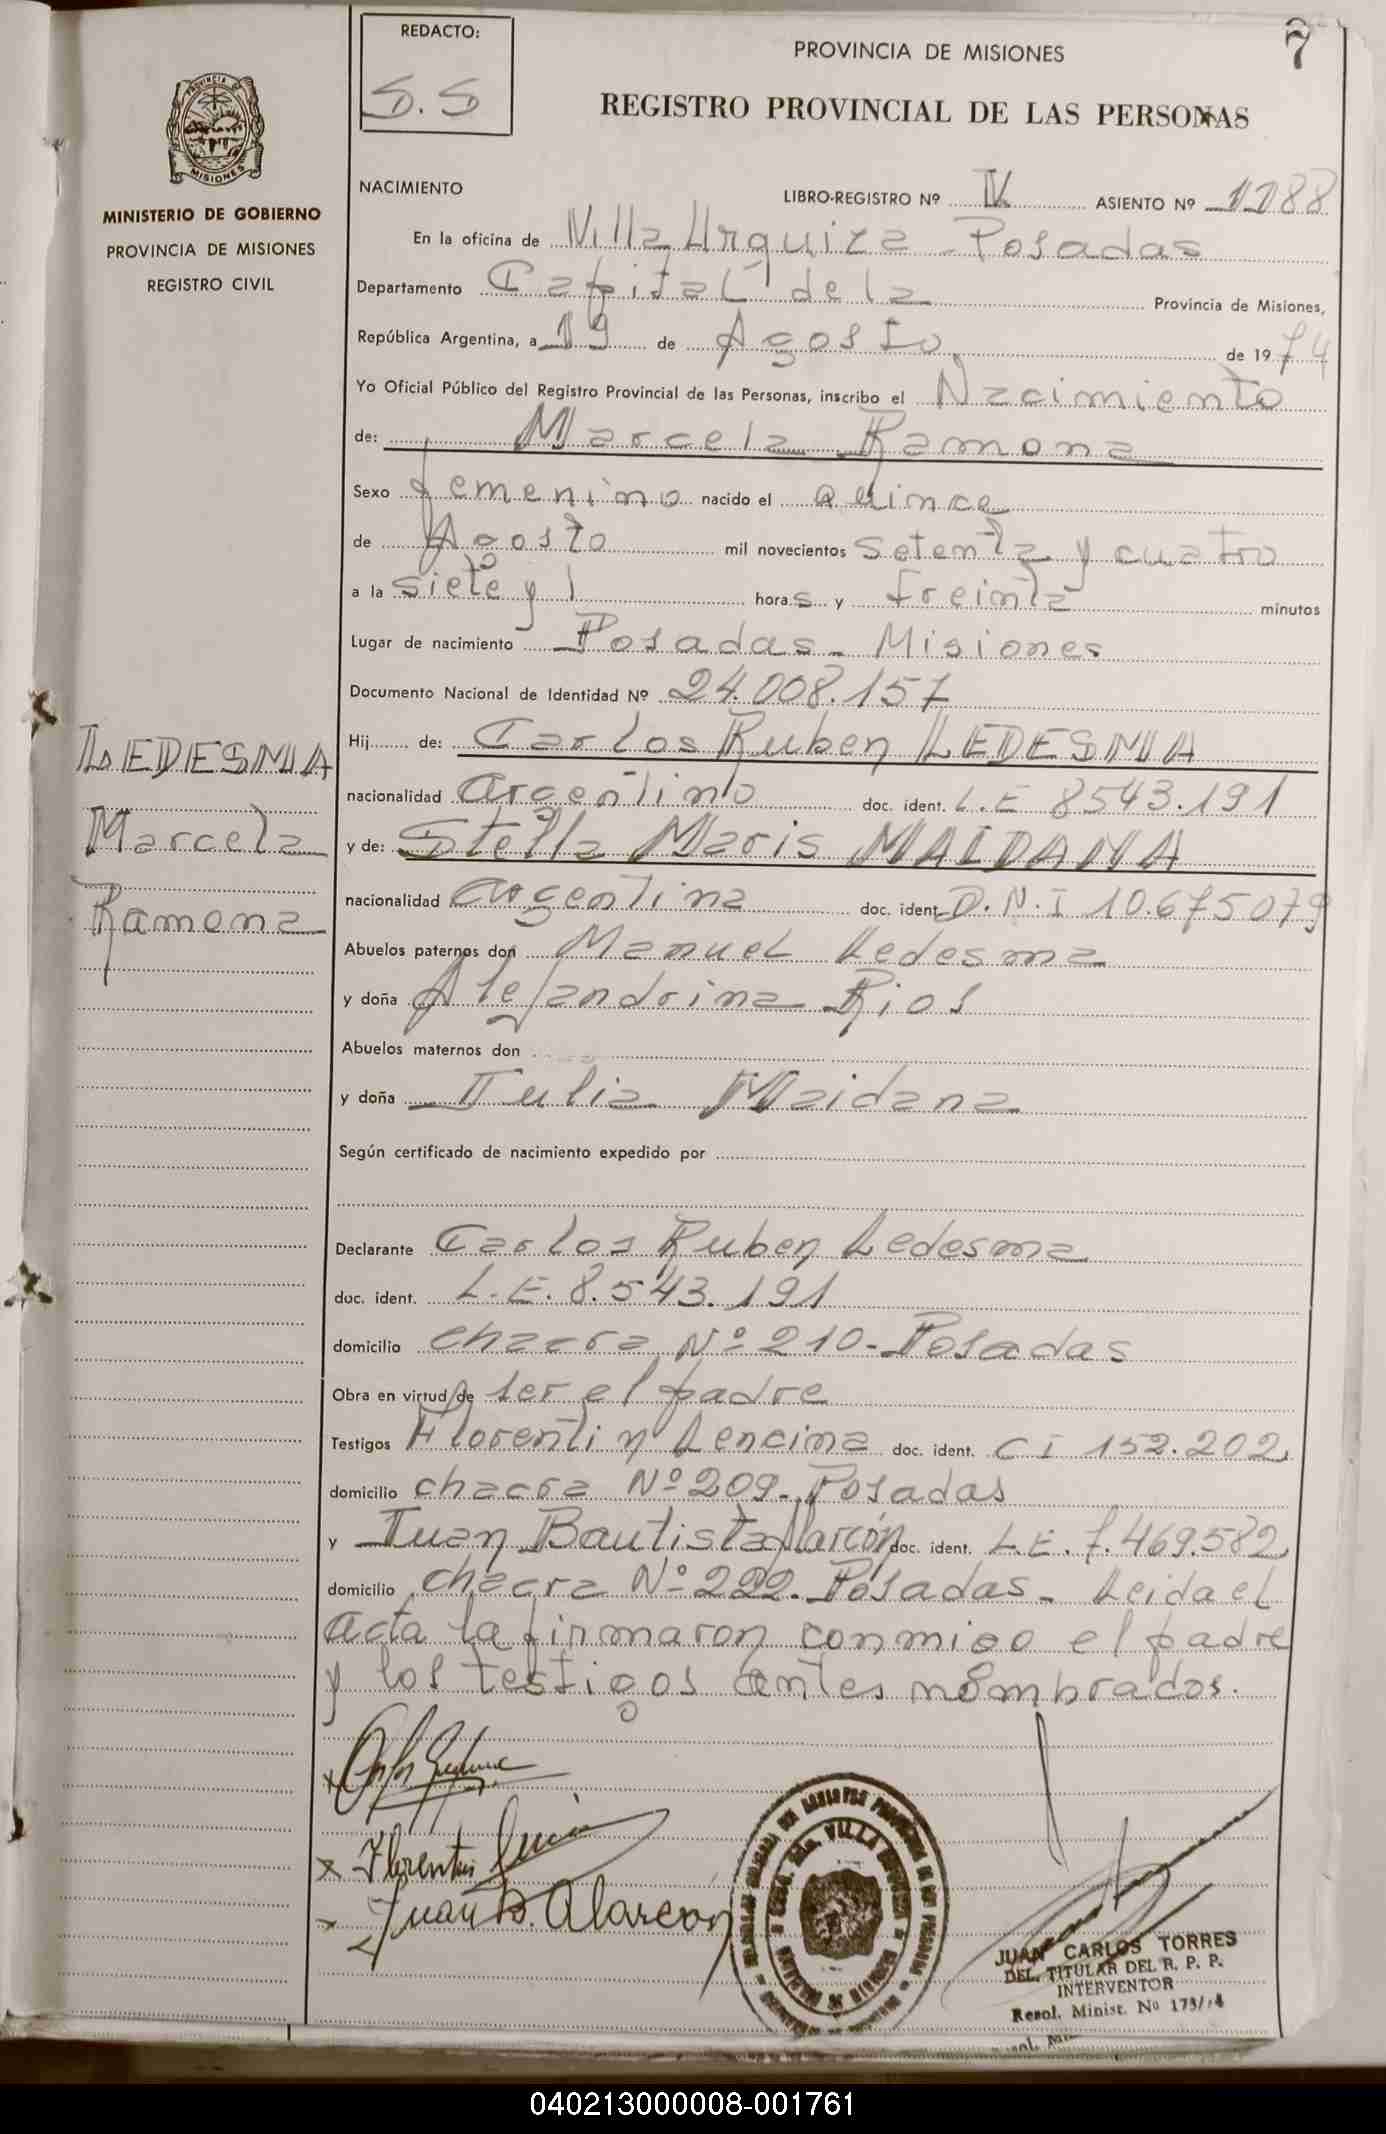 REDACTO:
S.S
7
PROVINCIA DE MISIONES
REGISTRO PROVINCIAL DE LAS PERSONAS
PROVINCIA DE
MISIONES
MINISTERIO DE GOBIERNO
PROVINCIA DE MISIONES
REGISTRO CIVIL
NACIMIENTO LIBRO-REGISTRO Nº IV ASIENTO Nº 1188
En la oficina de Villa Urquiza - Posadas
Departamento Capital de la Provincia de Misiones,
República Argentina, a 19 de Agosto de 1974
Yo Oficial Público del Registro Provincial de las Personas, inscribo el Nacimiento
de: Marcela Ramona
Sexo femenino nacido el quince
de Agosto mil novecientos setenta y cuatro
a la siete y horas y treinta minutos
Lugar de nacimiento Posadas - Misiones
Documento Nacional de Identidad Nº 24.008.157
Hij de: Carlos Ruben LEDESMA
nacionalidad argentino doc. ident. L.E 8543.191
y de: Stella Maris MAIDANA
nacionalidad argentina doc. ident. D.N.I 10.675079
Abuelos paternos don Manuel Ledesma
y doña Alejandrina Rios
Abuelos maternos don
y doña Julia Maidana
Según certificado de nacimiento expedido por
Declarante Carlos Ruben Ledesma
doc. ident. L.E. 8.543.191
domicilio chacra Nº 210 - Posadas
Obra en virtud de ser el padre
Testigos Florentin Lencina doc. ident. C I 152.202
domicilio chacra Nº 209 - Posadas
y Juan Bautista Alarcón doc. ident. L.E. 7.469.582
domicilio chacra Nº 222. Posadas - Leida el
acta la firmaron conmigo el padre
y los testigos antes nombrados.
LEDESMA
Marcela
Ramona
x Florentin
Juan B. Alarcon
JUAN CARLOS TORRES
DEL. TITULAR DEL R. P. P.
INTERVENTOR
Resol. Minist. No 173/74
040213000008-001761